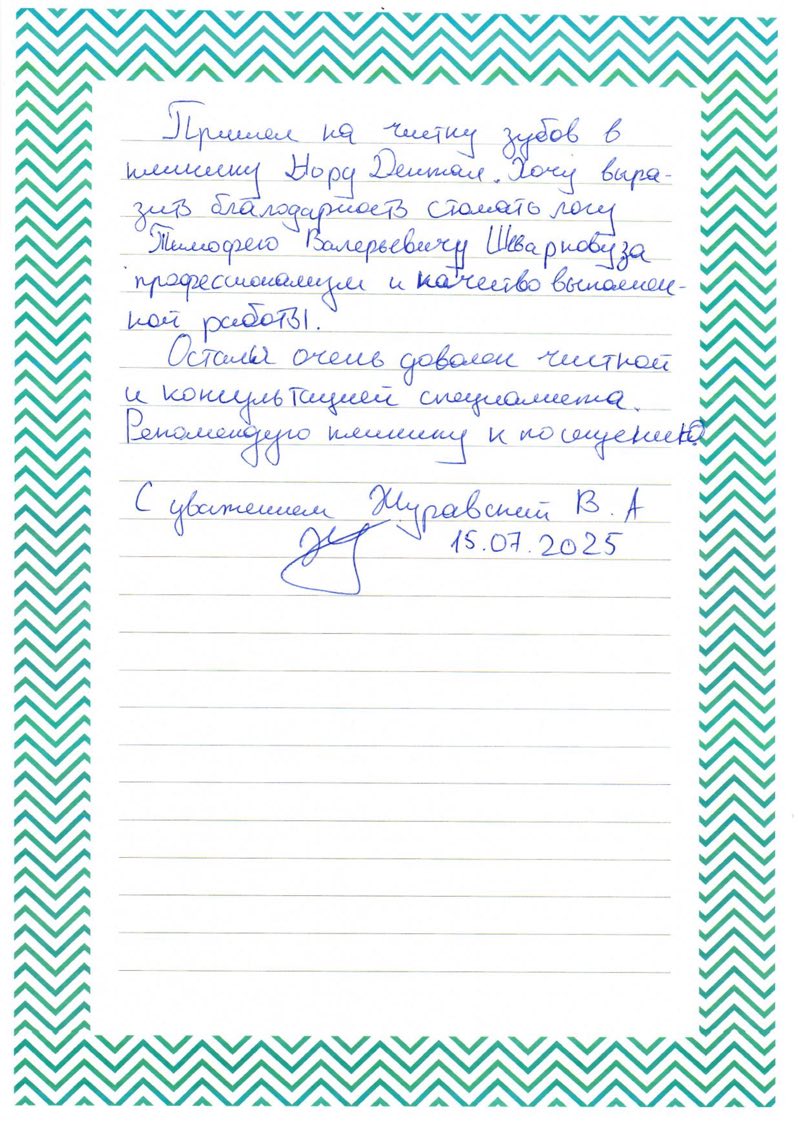 Пришел на чистку зубов в
клинику Норд Дентал. Хочу выра-
зить благодарность стоматологу
Тимофею Валерьевичу Шваркову за
профессионализм и качество выполнен-
ной работы.
Остался очень доволен чисткой
и консультацией специалиста.
Рекомендую клинику к посещению
С уважением Журавский В. А
15.07.2025